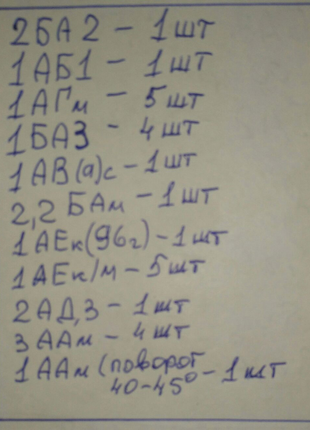 2БА2 - 1шт
1АБ1 - 1шт
1АГм - 5шт
1БА3 - 4шт
1АВ(а)с - 1шт
2,2 БАм - 1шт
1АЕк(96г) - 1шт
1АЕк/м - 5шт
2АД,3 - 1шт
3ААм - 4шт
1ААм (поворот
40-45° - 1шт